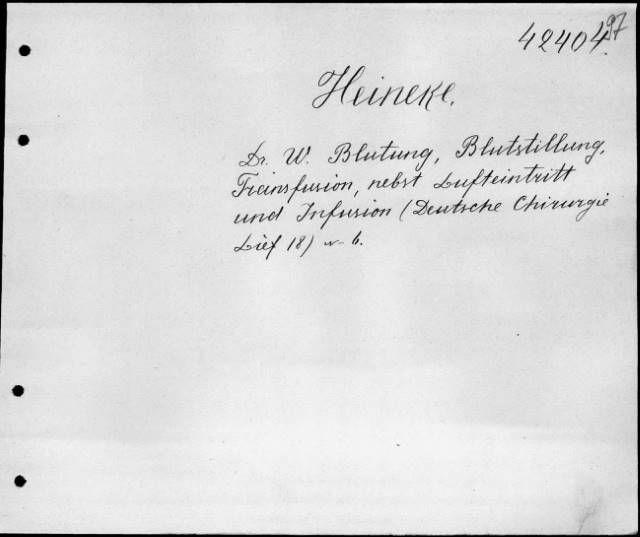 42404
97
Heineke.
Dr. W. Blutung, Blutstillung,
Transfusion, nebst Lufteintritt
und Infusion (Deutsche Chirurgie
Lief 18)